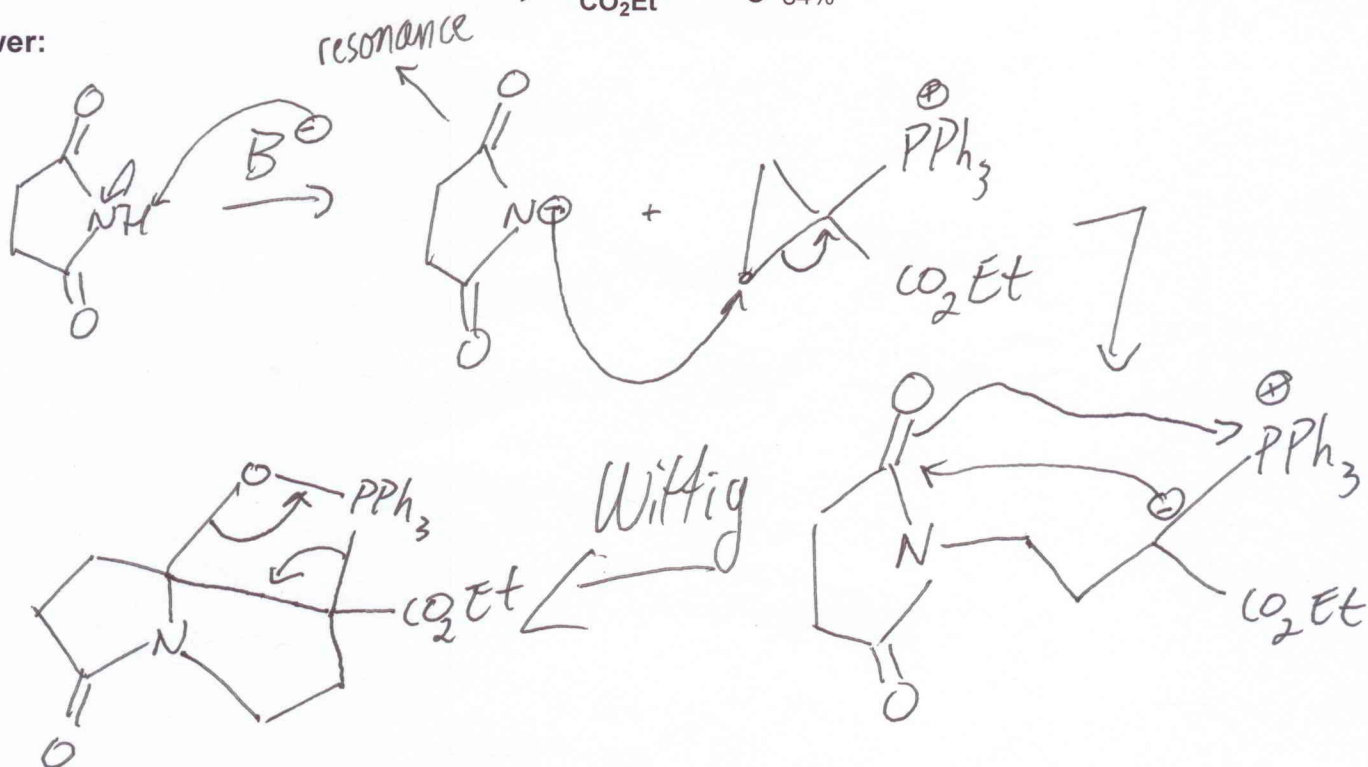 CO₂Et
ver:
resonance
O
O
NH
B ⊖
O
O
N⊖
+
⊕
PPh₃
CO₂Et
O
⊕
PPh₃
⊖
N
CO₂Et
O
Wittig
O
PPh₃
CO₂Et
N
O